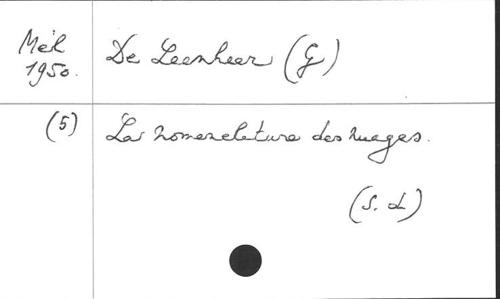 Mél De Leenheer (G)
1950.
(5) La nomenclature des nuages.
(S. d)